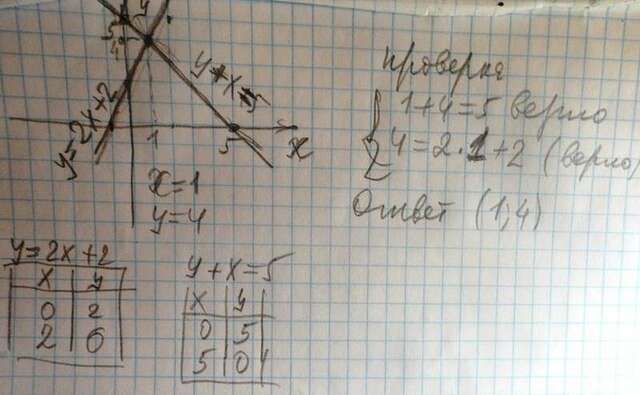 y
5
4
y+x=5
y=2x+2
1
5
x
x=1
y=4
проверка
1+4=5 верно
4=2·1+2 (верно)
Ответ (1;4)
y=2x+2
x y
0 2
2 6
y+x=5
x y
0 5
5 0